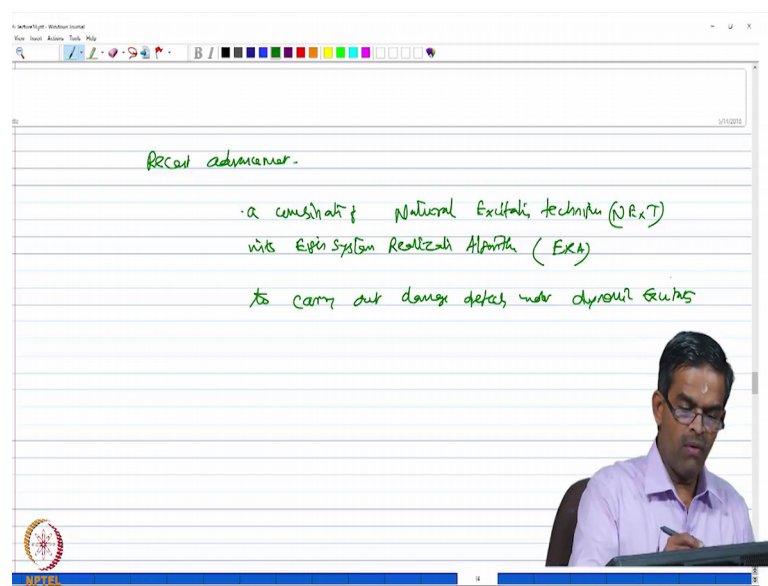 Windows Journal
View Insert Actions Tools Help
B I
5/14/2018
Recent advancement.
. a combinati of Natural Excitatio technique (NExT)
with Eigen System Realizati Algorithm (ERA)
to carry out damage detect under dynamic
14
NPTEL